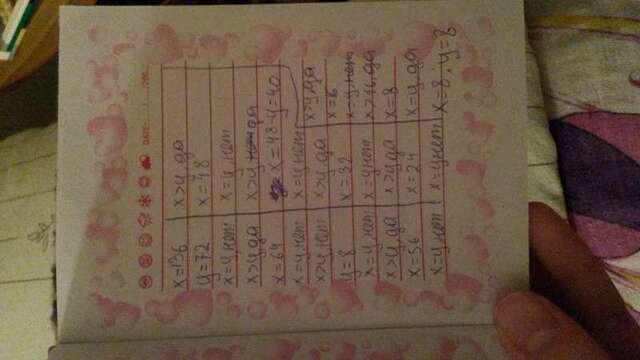 DATE:....../....../200...
x=136
y=72
x=y, нет
x>y, да
x=64
x=y, нет
x>y, нет
y=8
x=y, нет
x>y, да
x=56
x=y, нет
x>y, да
x=48
x=y, нет
x>y да
x=48-y=40
x=y, нет
x>y, да
x=32
x=y нет
x>y да
x=24
x=y нет
x>y, да
x=y, нет
да
x=8
x=y, да
x=8; y=8